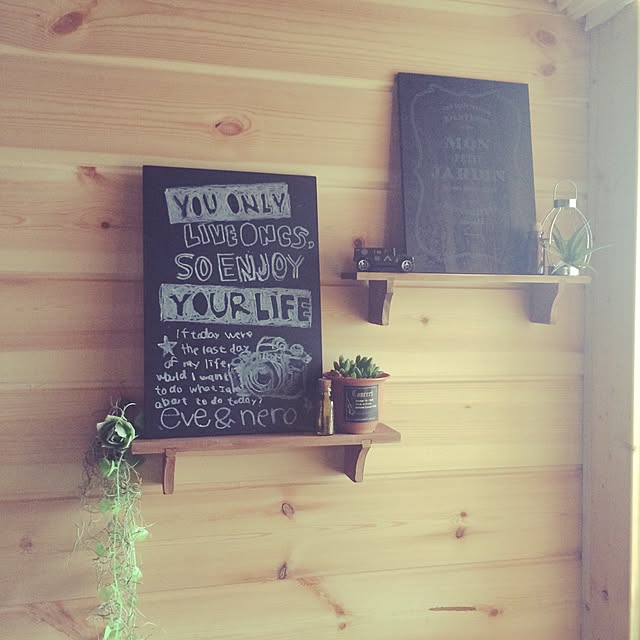 YOU ONLY
LIVE ONCS.
SO ENJOY
YOUR LIFE
If today were
the last day
of my life,
would I want
to do what I am
abort to do today?
eve & nero
MON
PETIT
JARDIN
Concert